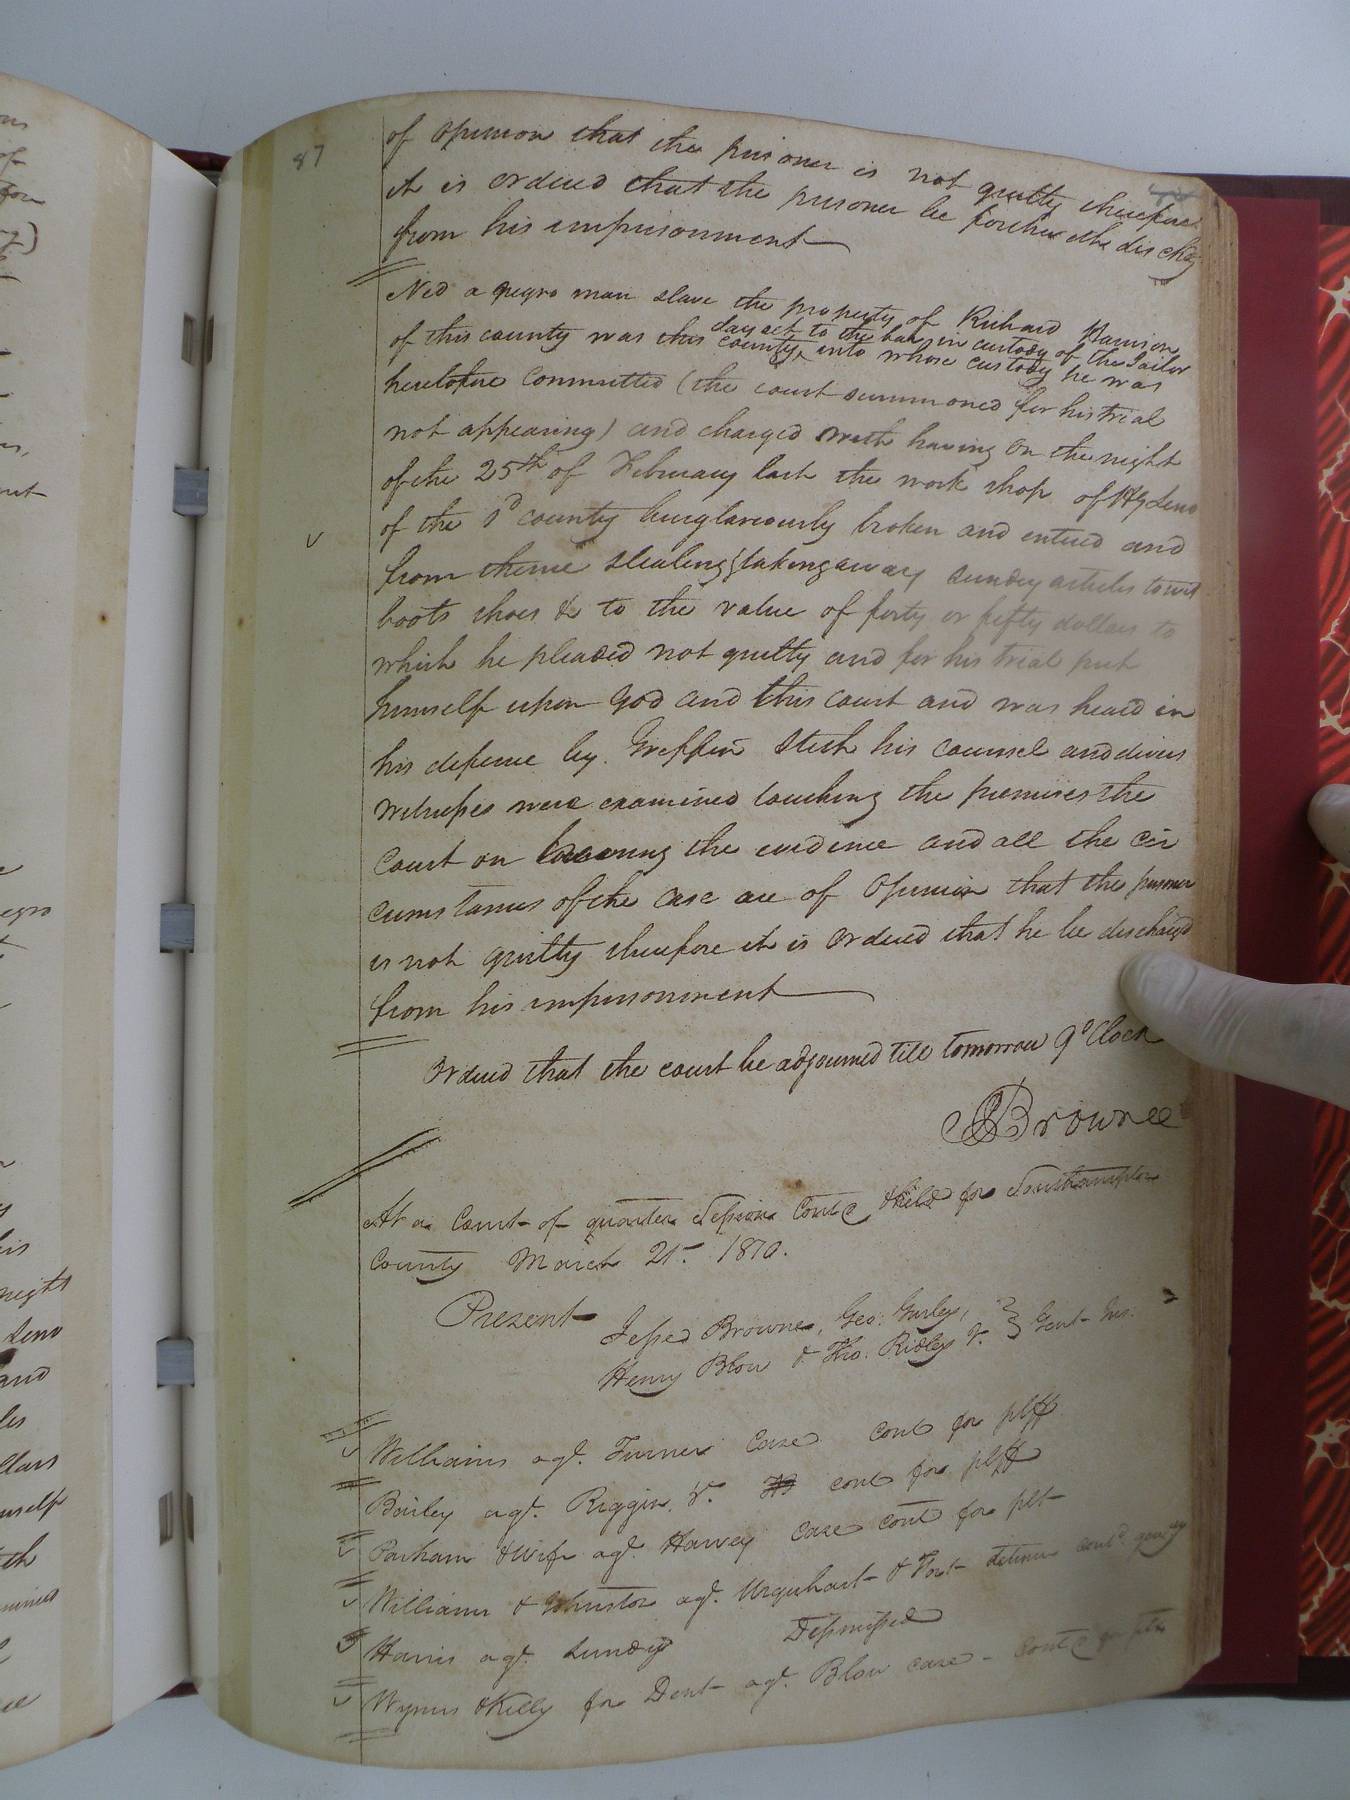 87
of opinion that the prisoner is not guilty therefore
it is ordered that the prisoner be forthwith dischg
from his imprisonment
Ned a negro man slave the property of Richard Harrison
of this county was this day set to the bar in custody of the Jailor
county, into whose custody he was
heretofore committed (the court summoned for his trial
not appearing) and charged with having on the night
of the 25th of February last the work shop of
of the sd county burglariously broken and entered and
from thence stealing & taking away sundry articles towit
boots shoes &c to the value of forty or fifty dollars to
which he pleaded not guilty and for his trial put
himself upon God and this court and was heard in
his defence by Griffin Stith his counsel and divers
witnesses were examined touching the premises the
court on hearing the evidence and all the cir
cumstances of the case are of opinion that the prisoner
is not guilty therefore it is ordered that he be discharg'd
from his imprisonment
Ordered that the court be adjourned till tomorrow 9 oClock
Browne
At a Court of quarter Session Contd & held for Southampton
County March 21st 1810.
Present Jesse Browne, Geo: Gurley,
Henry Blow & Tho. Ridley Jr. } Gent Jus:
Williams agt. Turner Case cont for plff
Bailey agt. Riggin, &c. cont for plff
Parham & wife agt. Harvey case cont for plt
Williams & Johnston agt. Urquhart & Fort detinue contd
Harris agt. Lundy Dismissed
Wynns & Kelly for Dent agt. Blow case - Contd